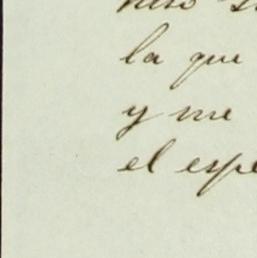 la que
y me
el espe